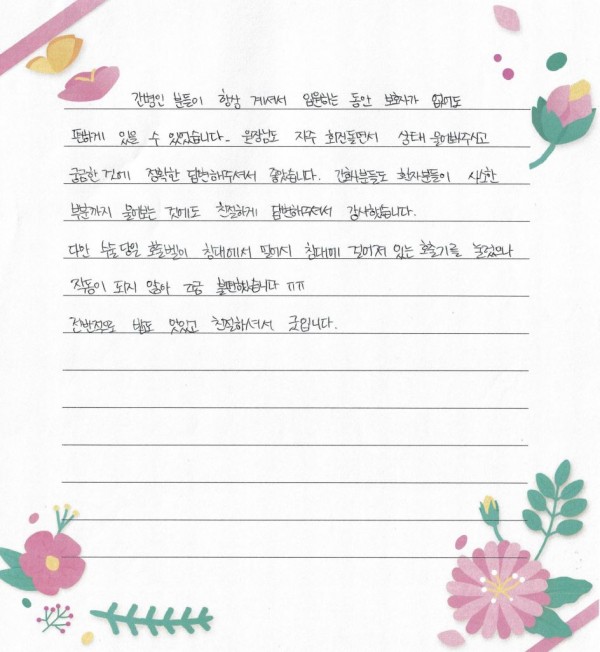 간병인 분들이 항상 계셔서 입원하는 동안 보호자가 없어도
편하게 있을 수 있었습니다. 원장님도 자주 회진돌면서 상태 물어봐주시고
궁금한 것에 정확한 답변해주셔서 좋았습니다. 간호사분들도 환자분들이 사소한
부분까지 물어보는 것에도 친절하게 답변해주셔서 감사했습니다.
다만 수술당일 호출벨이 침대에서 멀어서 침대에 걸어져 있는 호출기를 눌렀으나
작동이 되지 않아 조금 불편했습니다 ㅠㅠ
전반적으로 밥도 맛있고 친절하셔서 굿입니다.